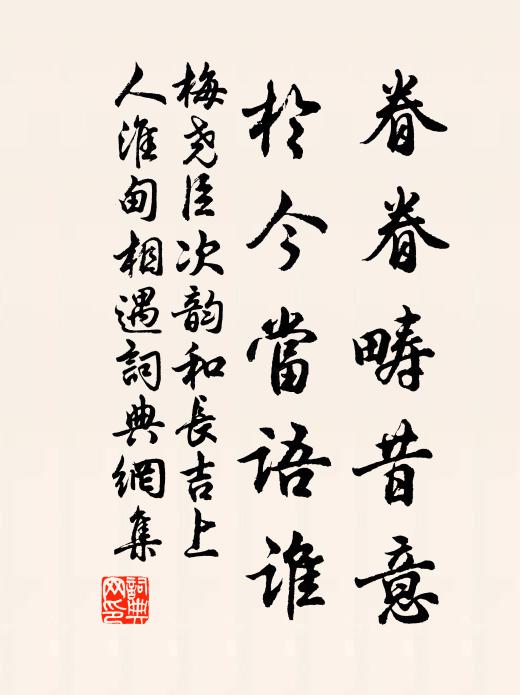 眷眷疇昔意
於今當語誰
梅尧臣次韵和長吉上
人淮甸相遇詞典網集
詞典
网印